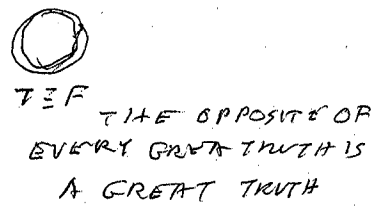 T=F
THE OPPOSITE OF
EVERY GREAT TRUTH IS
A GREAT TRUTH